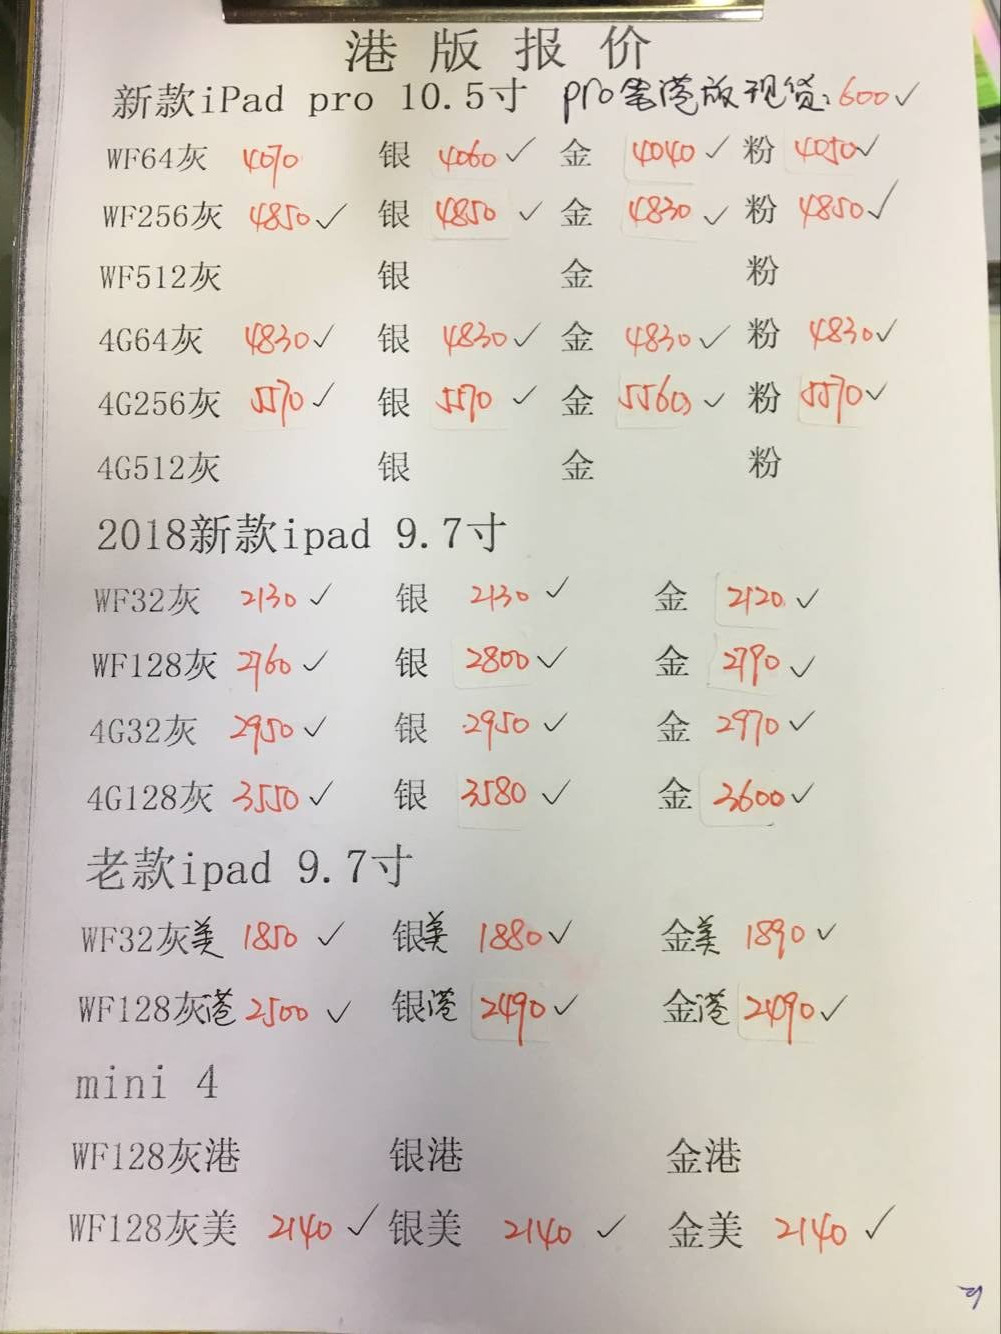 港 版 报 价
新款iPad pro 10.5寸 pro笔港版现货:600✓
WF64灰 4070 银 4060✓ 金 4040✓ 粉 4050✓
WF256灰 4850✓ 银 4850✓ 金 4830✓ 粉 4850✓
WF512灰 银 金 粉
4G64灰 4830✓ 银 4830✓ 金 4830✓ 粉 4830✓
4G256灰 5570✓ 银 5570✓ 金 5560✓ 粉 5570✓
4G512灰 银 金 粉
2018新款ipad 9.7寸
WF32灰 2130✓ 银 2130✓ 金 2120✓
WF128灰 2760✓ 银 2800✓ 金 2790✓
4G32灰 2950✓ 银 2950✓ 金 2970✓
4G128灰 3550✓ 银 3580✓ 金 3600✓
老款ipad 9.7寸
WF32灰美 1850✓ 银美 1880✓ 金美 1890✓
WF128灰港 2500✓ 银港 2490✓ 金港 2490✓
mini 4
WF128灰港 银港 金港
WF128灰美 2140✓ 银美 2140✓ 金美 2140✓